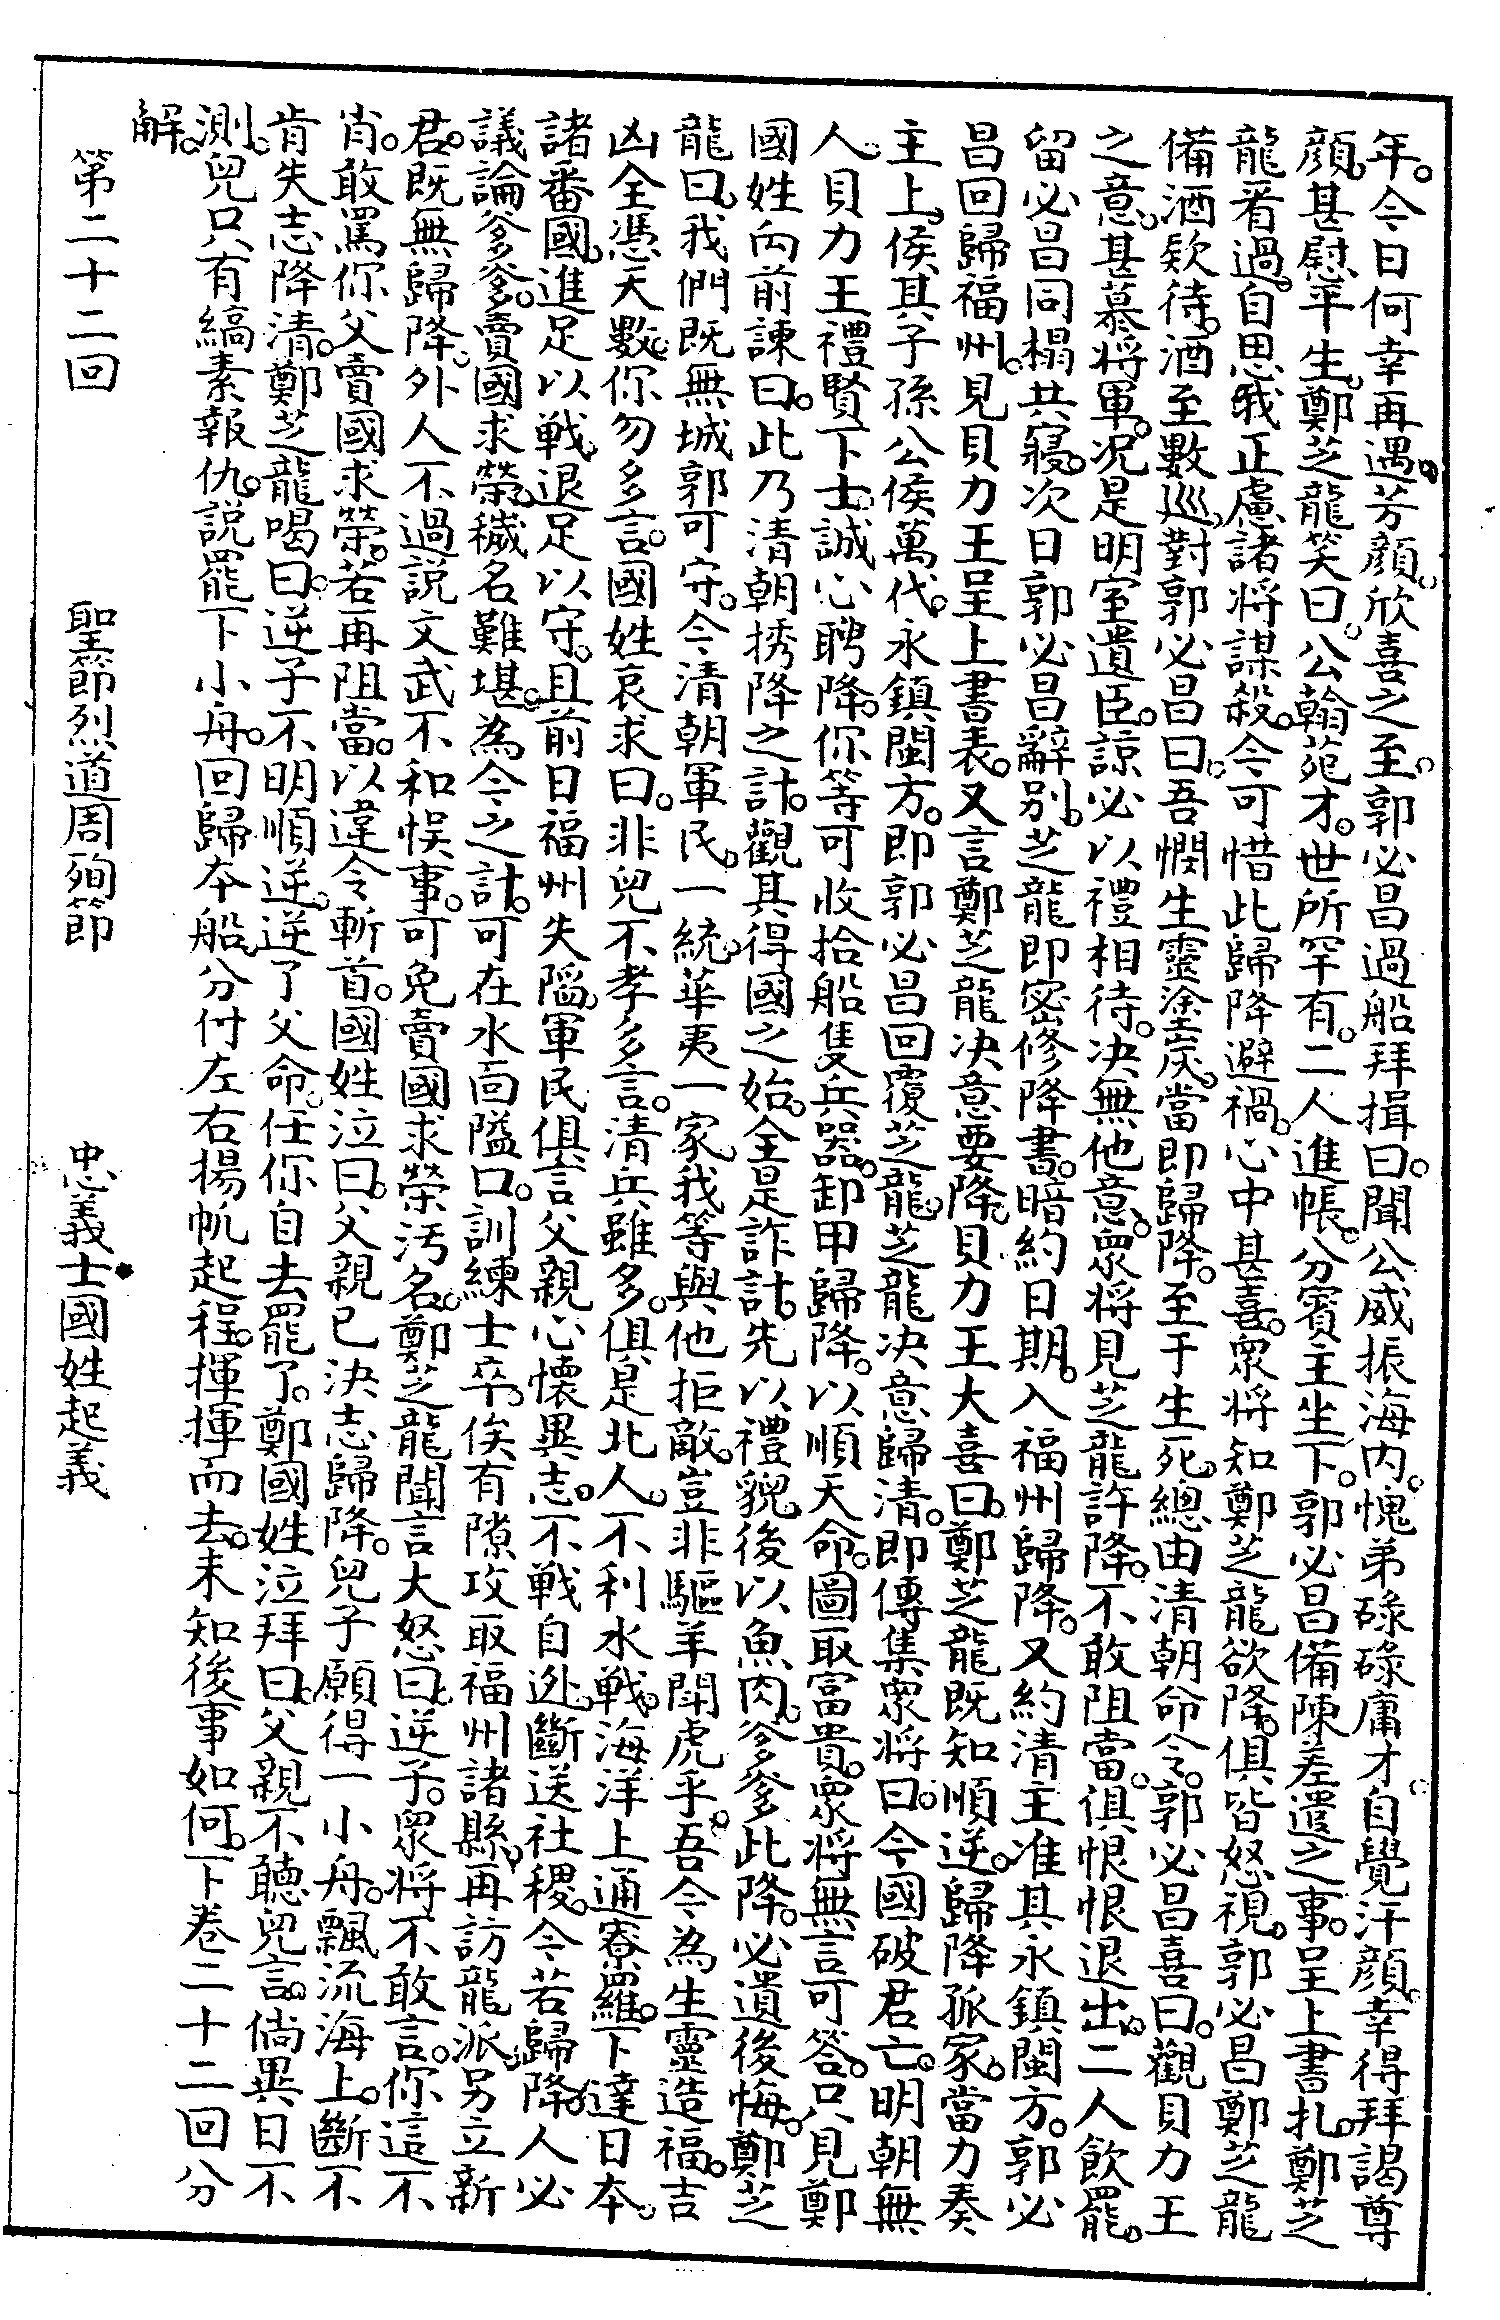 年。今日何幸再遇芳顔。欣喜之至。郭必昌過船拜揖曰。聞公威振海内。愧弟碌碌庸才。自覺汗顔。幸得拜謁尊
顔。甚慰平生。鄭芝龍笑曰。公翰苑才。世所罕有。二人進帳。分賓主坐下。郭必昌備陳差遣之事。呈上書扎。鄭芝
龍看過。自思我正慮諸将謀殺。今可惜此歸降避禍。心中甚喜。衆将知鄭芝龍欲降。俱皆怒視。郭必昌鄭芝龍
備酒欵待。酒至數巡。對郭必昌曰。吾憫生靈塗炭。當即歸降。至于生死。總由清朝命令。郭必昌喜曰。觀貝力王
之意。甚慕將軍。况是明室遺臣。諒必以禮相待。决無他意。衆将見芝龍許降。不敢阻當。俱恨恨退出。二人飲罷。
留必昌同榻共寢。次日郭必昌辭别。芝龍即密修降書。暗約日期。入福州歸降。又約清主准其永鎮閩方。郭必
昌回歸福州。見貝力王呈上書表。又言鄭芝龍决意要降。貝力王大喜曰。鄭芝龍既知順逆。歸降孤家。當力奏
主上。侯其子孫公侯萬代。永鎮閩方。即郭必昌回覆芝龍。芝龍决意歸清。即傳集衆将曰。今國破君亡。明朝無
人。貝力王禮賢下士。誠心聘降。你等可收拾船隻兵器。卸甲歸降。以順天命。圖取富貴。衆将無言可答。只見鄭
國姓向前諫曰。此乃清朝誘降之計。觀其得國之始。全是詐計。先以禮貌。後以魚肉。爹爹此降。必遺後悔。鄭芝
龍曰。我們既無城郭可守。今清朝軍民。一統華夷一家。我等與他拒敵。豈非驅羊鬪虎乎。吾今為生靈造福。吉
凶全憑天數。你勿多言。國姓哀求曰。非兒不孝多言。清兵雖多。俱是北人。不利水戰。海洋上通寮羅。下達日本。
諸番國。進足以戰。退足以守。且前日福州失隘。軍民俱言父親心懷異志。不戰自迯。斷送社稷。今若歸降。人必
議論爹爹。賣國求榮。穢名難堪。為今之計。可在水面隘口。訓練士卒。俟有隙攻取福州諸縣。再訪龍派。另立新
君。既無歸降。外人不過說文武不和悞事。可免賣國求榮汚名。鄭芝龍聞言大怒曰。逆子。衆将不敢言。你這不
肖。敢罵你父賣國求榮。若再阻當。以違令斬首。國姓泣曰。父親已決志歸降。兒子願得一小舟。飄流海上。斷不
肯失志降清。鄭芝龍喝曰。逆子不明順逆。逆了父命。任你自去罷了。鄭國姓泣拜曰。父親不聽兒言。倘異日不
測。兒只有縞素報仇。說罷下小舟。回歸本船。分付左右揚帆起程。揮揮而去。未知後事如何。下卷二十二回分
解。
第二十二回　聖節烈道周殉節　忠義士國姓起義